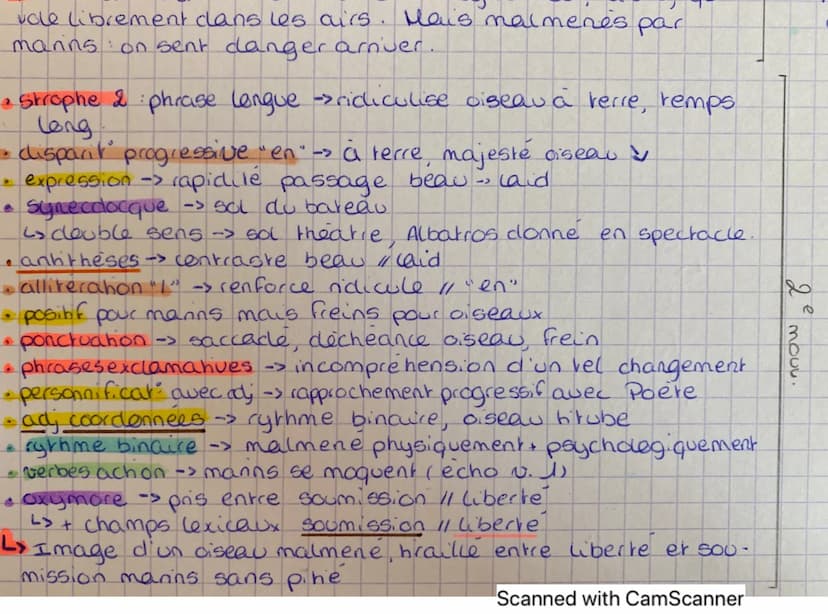 vole librement dans les airs. Mais malmenés par
marins : on sent danger arriver.
• strophe 2 : phrase longue -> ridiculise oiseau à terre, temps
long.
• disparit° progressive "en" -> à terre, majesté oiseau ↘
• expression -> rapidité passage beau -> laid
• synecdocque -> sol du bateau
↳ double sens -> sol théatre, Albatros donné en spectacle.
• antithèses -> contraste beau // laid
• allitération "l" -> renforce ridicule // "en"
• positif pour marins mais freins pour oiseaux
• ponctuation -> saccadé, déchéance oiseau, frein
• phrases exclamatives -> incompréhension d'un tel changement
• personnificat° avec adj -> rapprochement progressif avec Poète
• adj coordonnées -> rythme binaire, oiseau titube
• rythme binaire -> malmené physiquement + psychologiquement
• verbes action -> marins se moquent (écho v. 1)
• oxymore -> pris entre soumission // liberté
↳ + champs lexicaux soumission // liberté
↳ Image d'un oiseau malmené, tiraillé entre liberté et sou-
mission marins sans pitié
2e mouv.
Scanned with CamScanner